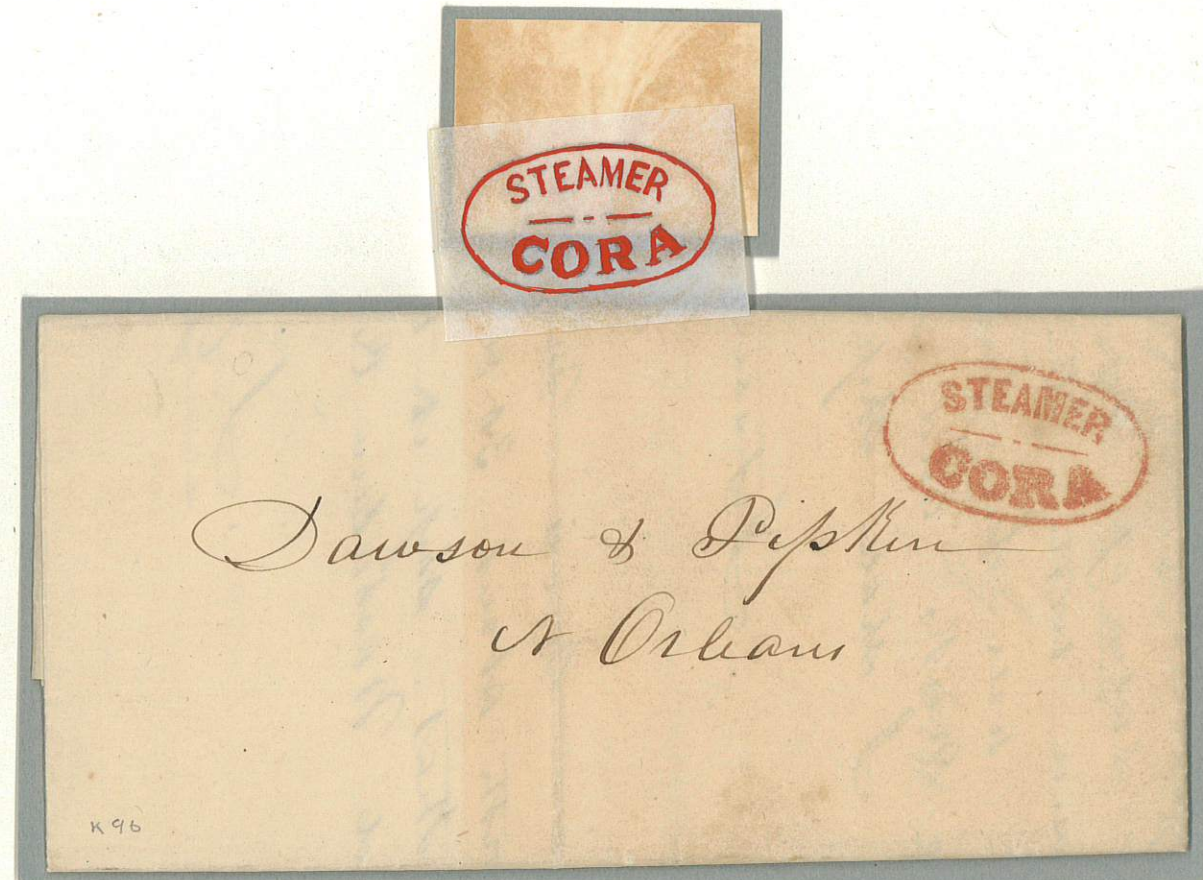 STEAMER
CORA
STEAMER
CORA
Dawson & Pipkin
N Orleans
K 96